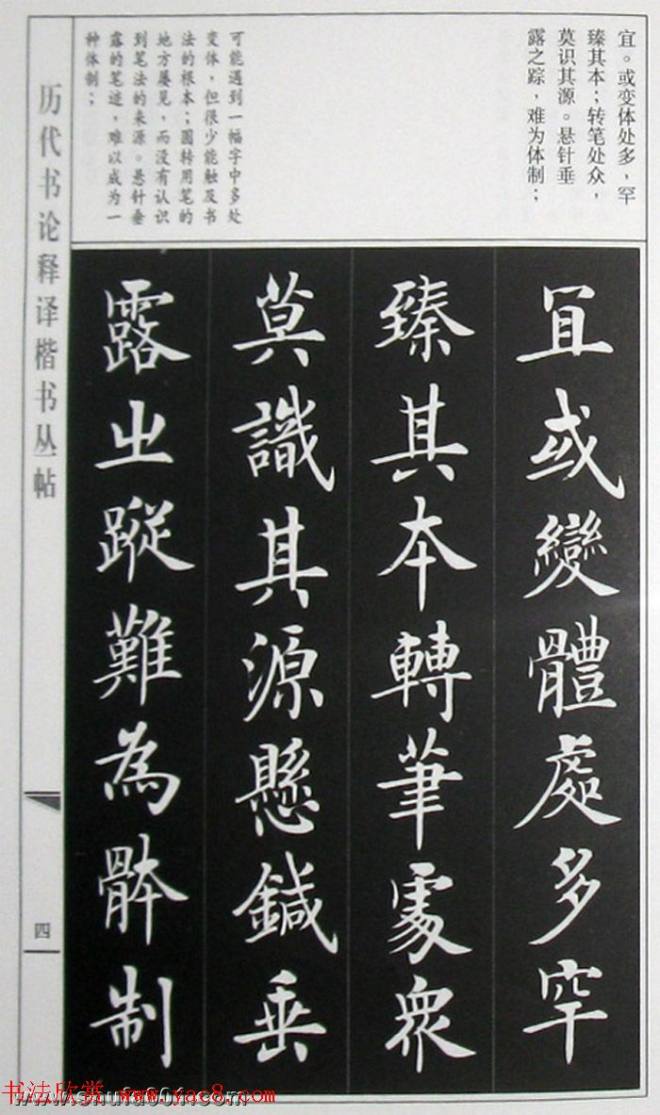 宜。或变体处多，罕
臻其本；转笔处众，
莫识其源。悬针垂
露之踪，难为体制；
可能遇到一幅字中多处
变体，但很少能触及书
法的根本；圆转用笔的
地方屡见，而没有认识
到笔法的来源。悬针垂
露的笔迹，难以成为一
种体制；
历代书论释译楷书丛帖
四
宜或變體處多罕
臻其本轉筆處衆
莫識其源懸鍼垂
露之蹤難為骵制
书法欣赏 www.yac8.com
www.shufa001.com